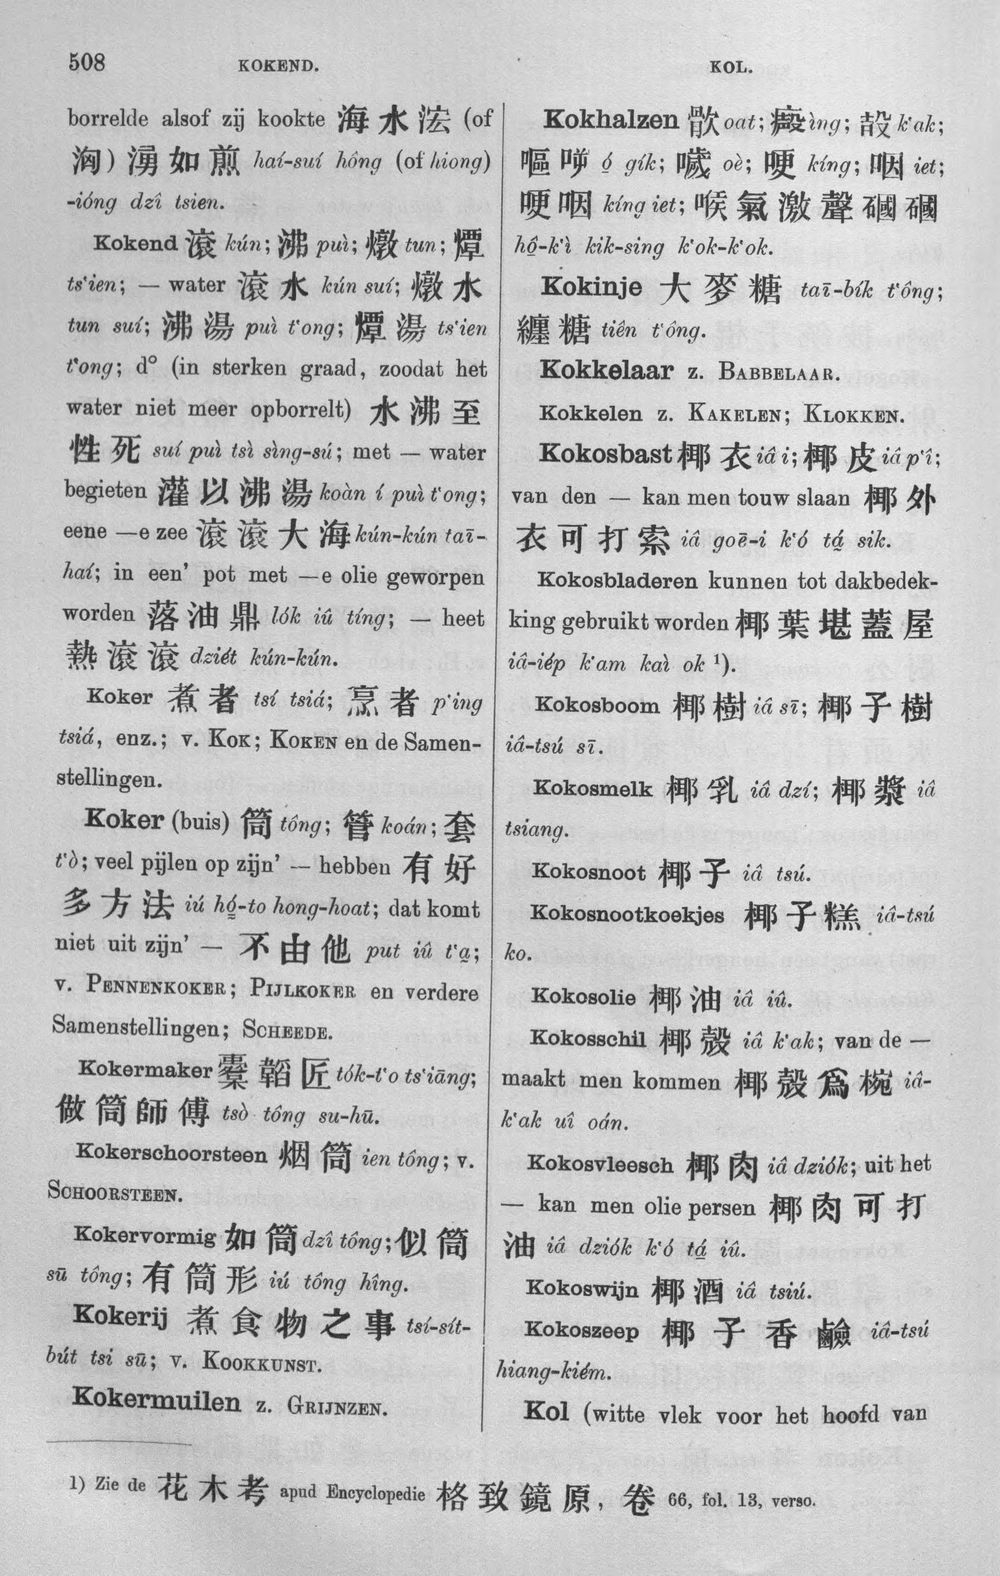 508
KOKEND.
KOL.
borrelde alsof zij kookte 海水浤 (of
洶) 湧如煎 haí-suí hông (of hiong)
-ióng dzî tsien.
Kokend 滾 kún; 沸 puì; 燉 tun; 燂
ts‘ien; — water 滾水 kún suí; 燉水
tun suí; 沸湯 puì t‘ong; 燂湯 ts‘ien
t‘ong; d° (in sterken graad, zoodat het
water niet meer opborrelt) 水沸至
性死 suí puì tsì sìng-sú; met — water
begieten 灌以沸湯 koàn í puì t‘ong;
eene —e zee 滾滾大海 kún-kún taī-
haí; in een’ pot met —e olie geworpen
worden 落油鼎 lók iû tíng; — heet
熱滾滾 dziét kún-kún.
Koker 煮者 tsí tsiá; 烹者 p‘ing
tsiá, enz.; v. KOK; KOKEN en de Samen-
stellingen.
Koker (buis) 筒 tông; 管 koán; 套
t‘ò; veel pijlen op zijn’ — hebben 有好
多方法 iú hó-to hong-hoat; dat komt
niet uit zijn’ — 不由他 put iû t‘a;
v. PENNENKOKER; PIJLKOKER en verdere
Samenstellingen; SCHEEDE.
Kokermaker 櫜韜匠 tók-t‘o ts‘iāng;
做筒師傅 tsò tông su-hū.
Kokerschoorsteen 烟筒 ien tông; v.
SCHOORSTEEN.
Kokervormig 如筒 dzî tông; 似筒
sū tông; 有筒形 iú tông hîng.
Kokerij 煮食物之事 tsí-sít-
bút tsi sū; v. KOOKKUNST.
Kokermuilen z. GRIJNZEN.
Kokhalzen 歕 oat; ing; 㱿 k‘ak;
嘔咿 ó gík; 噦 oè; 哽 kíng; 咽 iet;
哽咽 kíng iet; 喉氣激聲碅碅
hô-k‘ì kik-sing k‘ok-k‘ok.
Kokinje 大麥糖 taī-bík t‘ông;
纏糖 tiên t‘ông.
Kokkelaar z. BABBELAAR.
Kokkelen z. KAKELEN; KLOKKEN.
Kokosbast 椰衣 iâ i; 椰皮 iâ p‘î;
van den — kan men touw slaan 椰外
衣可打索 iâ goē-i k‘ó tá sik.
Kokosbladeren kunnen tot dakbedek-
king gebruikt worden 椰葉堪蓋屋
iâ-iép k‘am kaì ok ¹).
Kokosboom 椰樹 iâ sī; 椰子樹
iâ-tsú sī.
Kokosmelk 椰乳 iâ dzí; 椰漿 iâ
tsiang.
Kokosnoot 椰子 iâ tsú.
Kokosnootkoekjes 椰子糕 iâ-tsú
ko.
Kokosolie 椰油 iâ iû.
Kokosschil 椰殼 iâ k‘ak; van de —
maakt men kommen 椰殼爲椀 iâ-
k‘ak uî oán.
Kokosvleesch 椰肉 iâ dziók; uit het
— kan men olie persen 椰肉可打
油 iâ dziók k‘ó tá iû.
Kokoswijn 椰酒 iâ tsiú.
Kokoszeep 椰子香鹼 iâ-tsú
hiang-kiém.
Kol (witte vlek voor het hoofd van
1) Zie de 花木考 apud Encyclopedie 格致鏡原, 卷 66, fol. 13, verso.